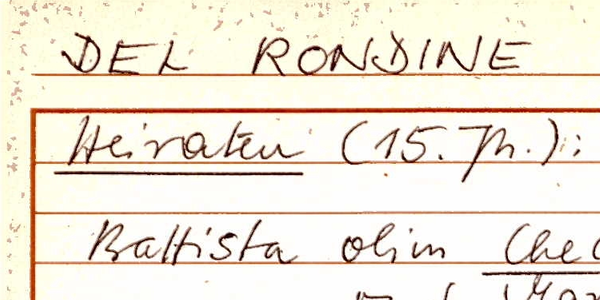 DEL RONDINE
Heiraten (15. Jh.):
Battista olim Chec